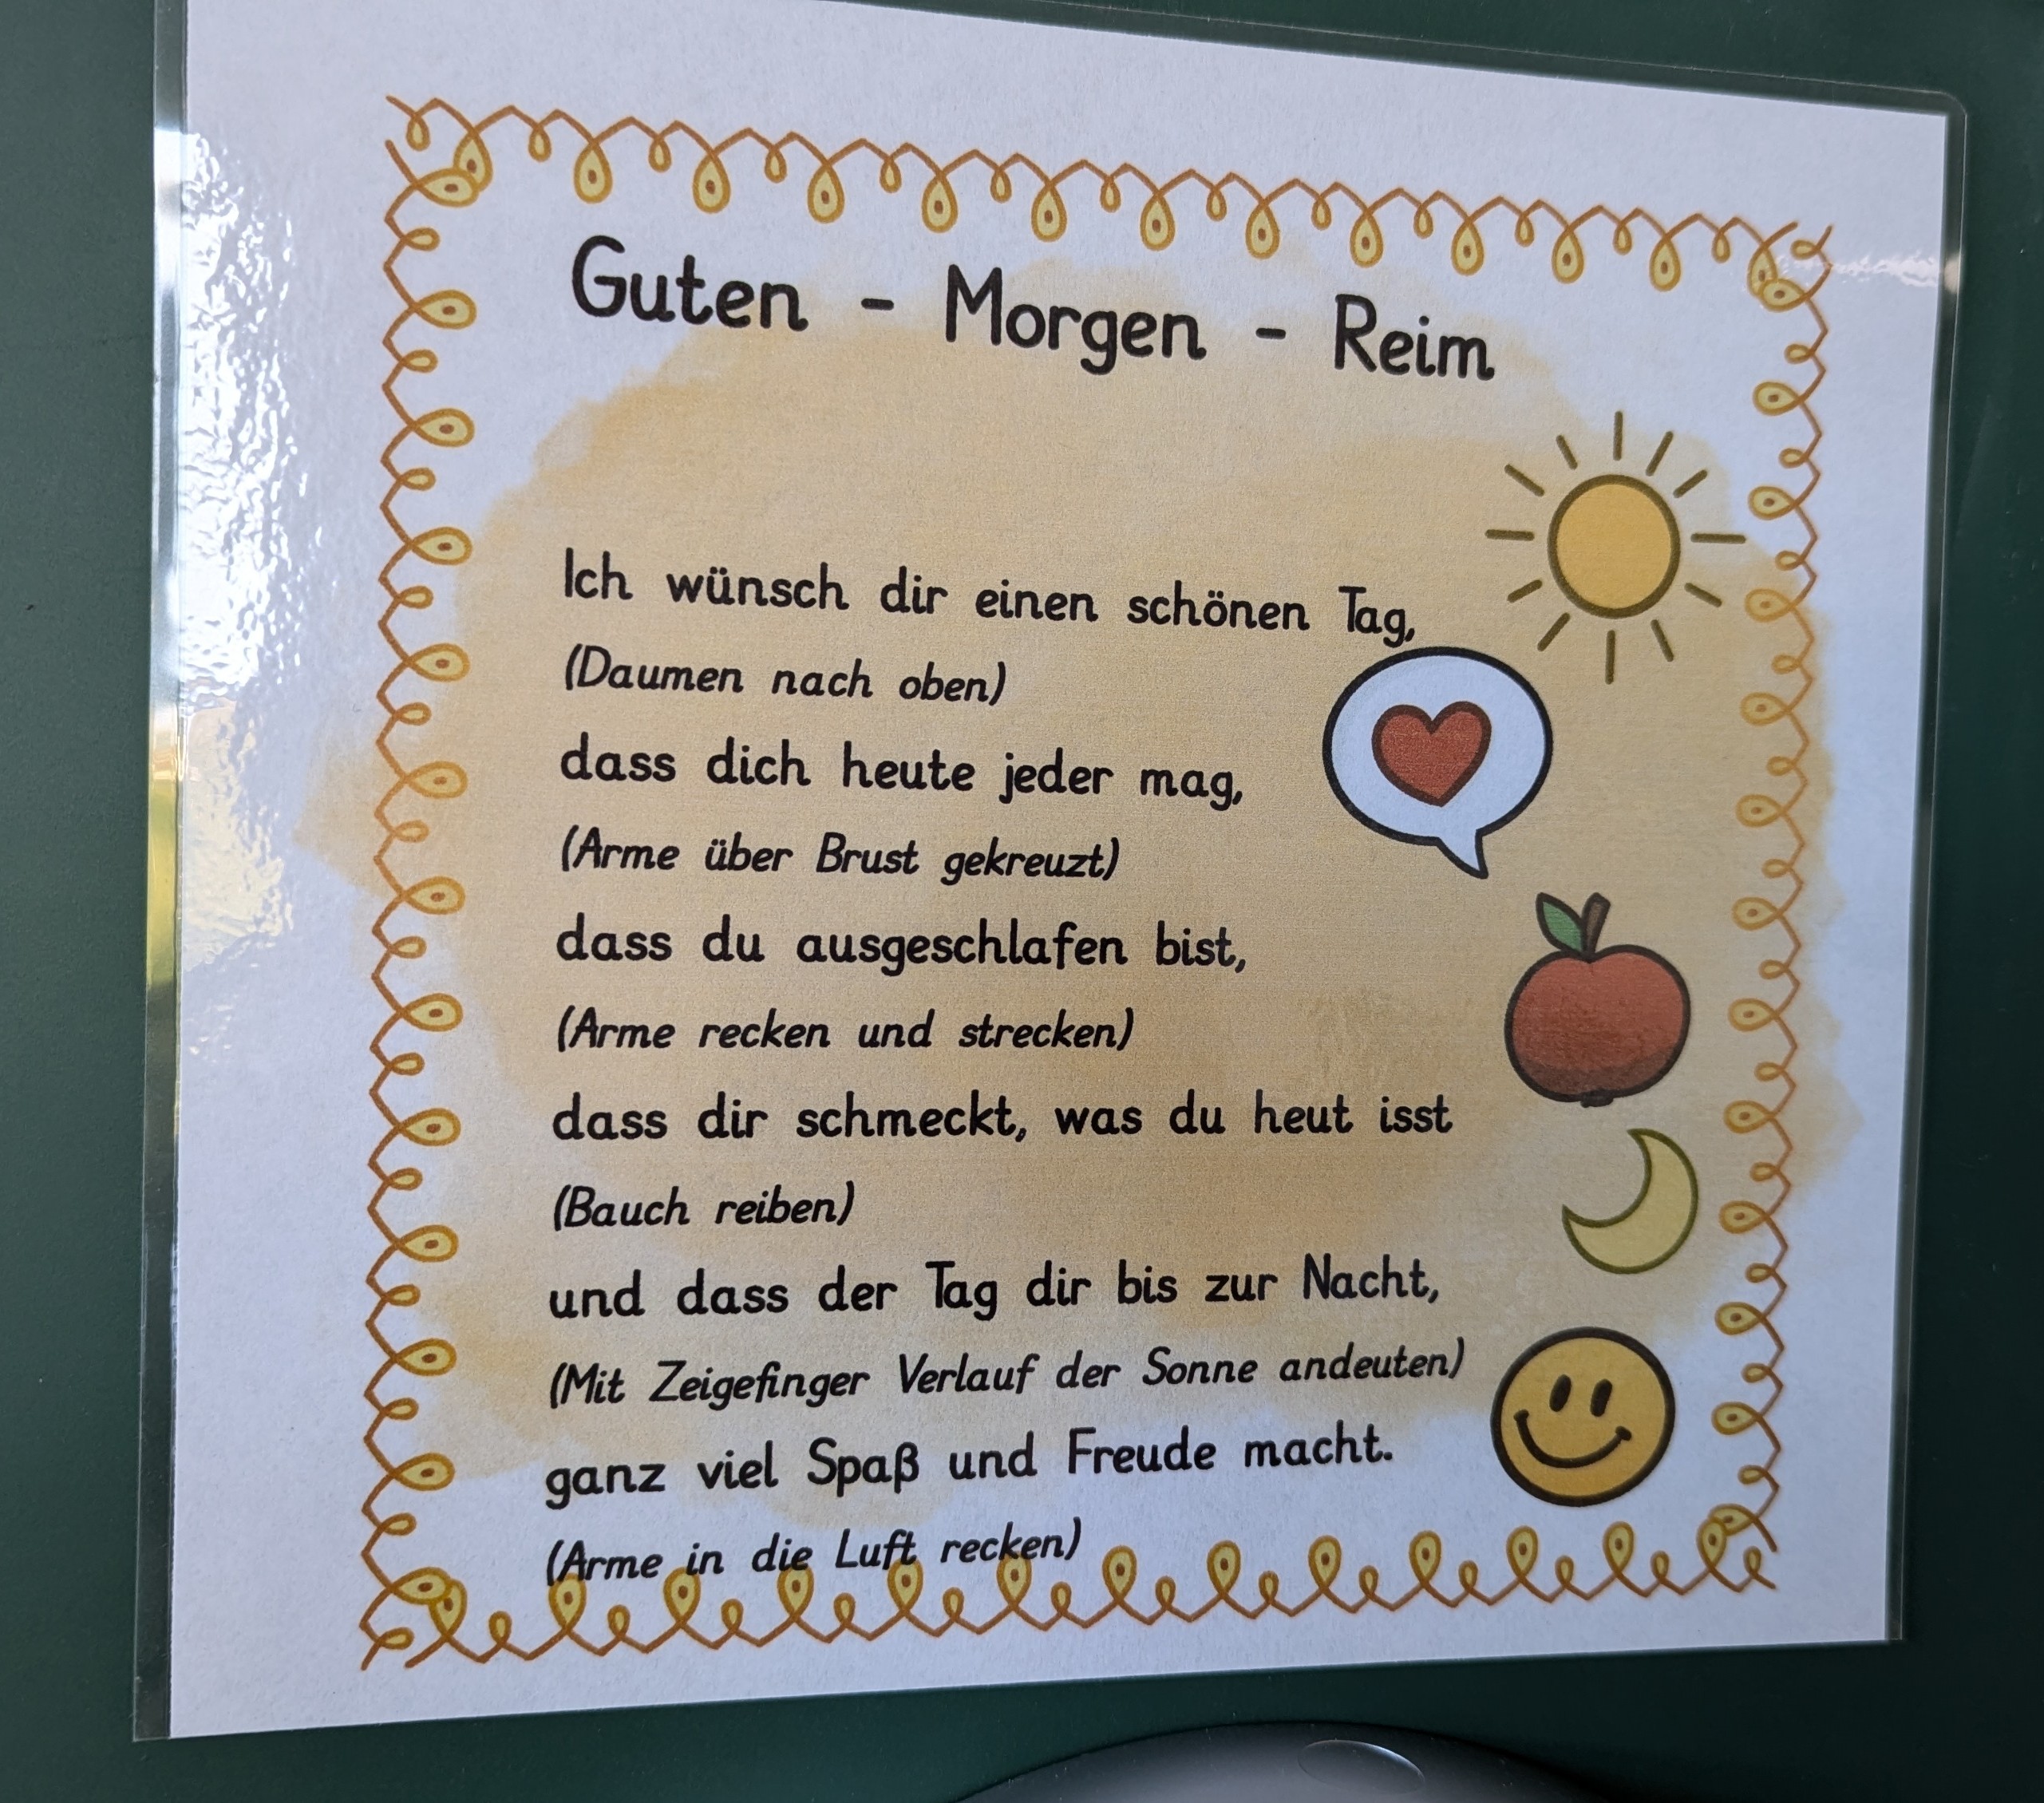 Guten - Morgen - Reim
Ich wünsch dir einen schönen Tag,
(Daumen nach oben)
dass dich heute jeder mag,
(Arme über Brust gekreuzt)
dass du ausgeschlafen bist,
(Arme recken und strecken)
dass dir schmeckt, was du heut isst
(Bauch reiben)
und dass der Tag dir bis zur Nacht,
(Mit Zeigefinger Verlauf der Sonne andeuten)
ganz viel Spaß und Freude macht.
(Arme in die Luft recken)